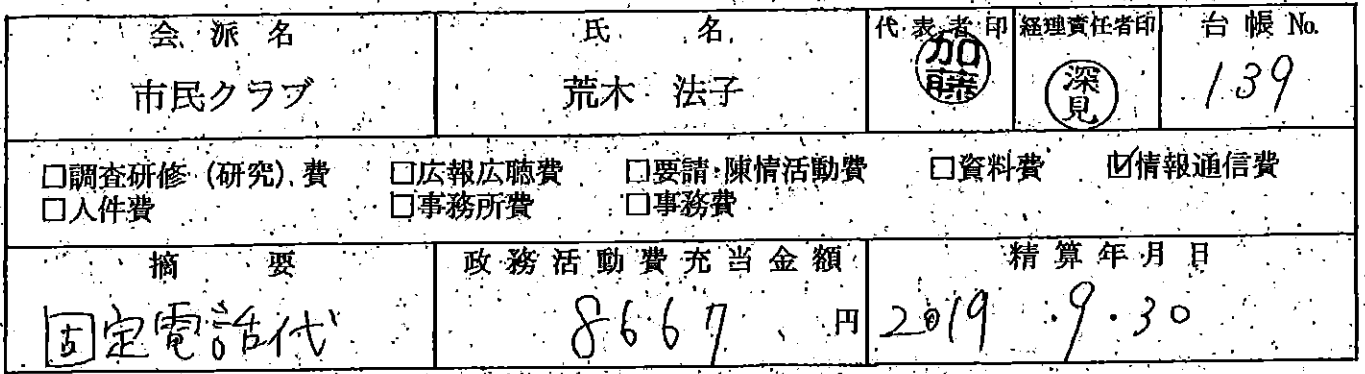 会派名 氏名 代表者印 経理責任者印 台帳No.
市民クラブ 荒木 法子 加藤 深見 139
□調査研修(研究)費 □広報広聴費 □要請・陳情活動費 □資料費 ☑情報通信費
□人件費 □事務所費 □事務費
摘要 政務活動費充当金額 精算年月日
固定電話代 8667円 2019.9.30